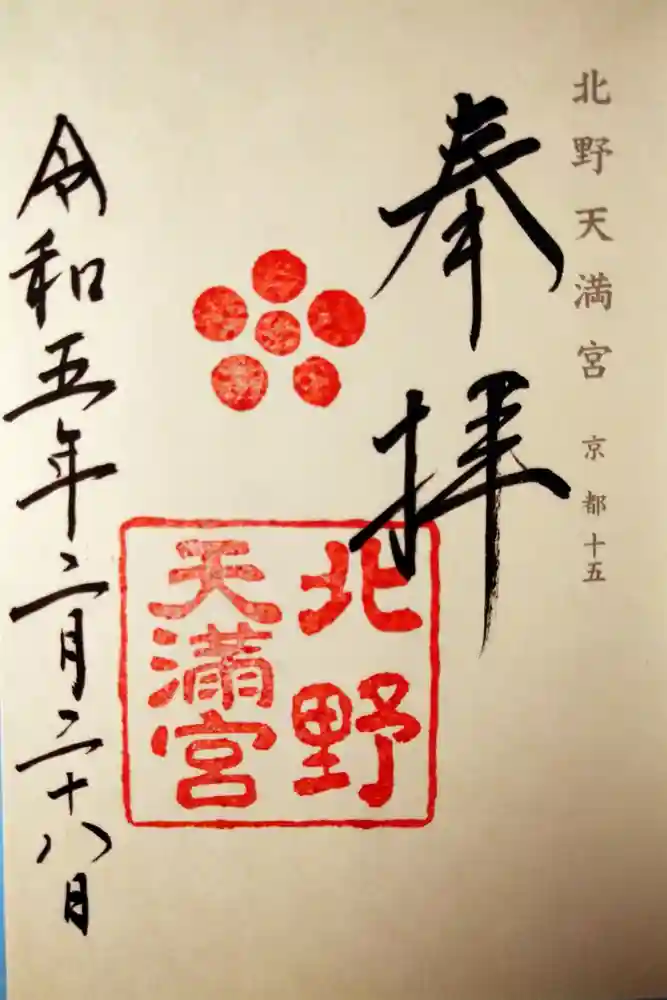 北野天満宮 京都十五
奉拝
北野
天満宮
令和五年二月二十八日